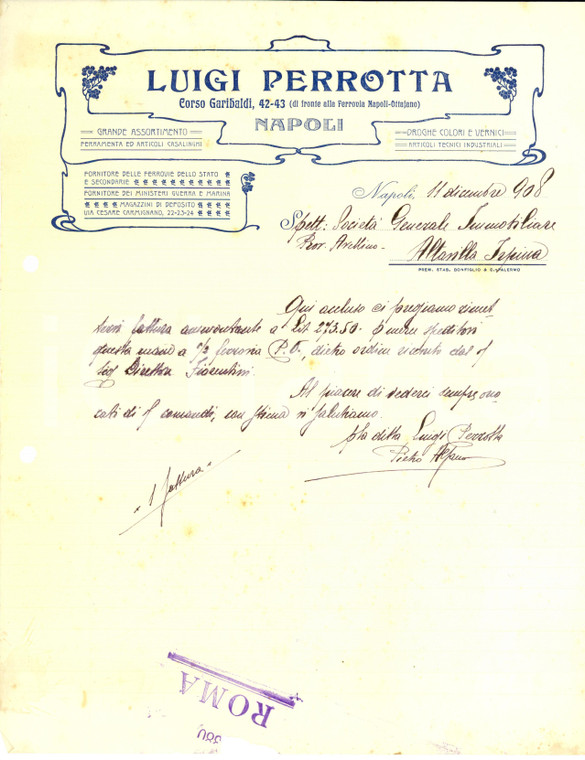 LUIGI PERROTTA
Corso Garibaldi, 42-43 (di fronte alla Ferrovia Napoli-Ottajano)
NAPOLI
GRANDE ASSORTIMENTO
FERRAMENTA ED ARTICOLI CASALINGHI
DROGHE COLORI E VERNICI
ARTICOLI TECNICI INDUSTRIALI
FORNITORE DELLE FERROVIE DELLO STATO
E SECONDARIE
FORNITORE DEI MINISTERI GUERRA E MARINA
MAGAZZINI DI DEPOSITO
VIA CESARE CARMIGNANO, 22-23-24
Napoli, 11 dicembre 908
Spett: Società Generale Immobiliare
Prov. Avellino - Altavilla Irpina
PREM. STAB. BONFIGLIO & C. PALERMO
Qui accluso ci pregiamo rimet
tervi fattura ammontante a Lit 273.50.
questa mano a ferrovia P. V., dietro ordine ricevuto dal
Sig Direttore Fiorentini.
Al piacere di vederci sempre ono
rati di comandi, con stima vi salutiamo.
p la ditta Luigi Perrotta
Pietro Alfano
1 fattura
ROMA